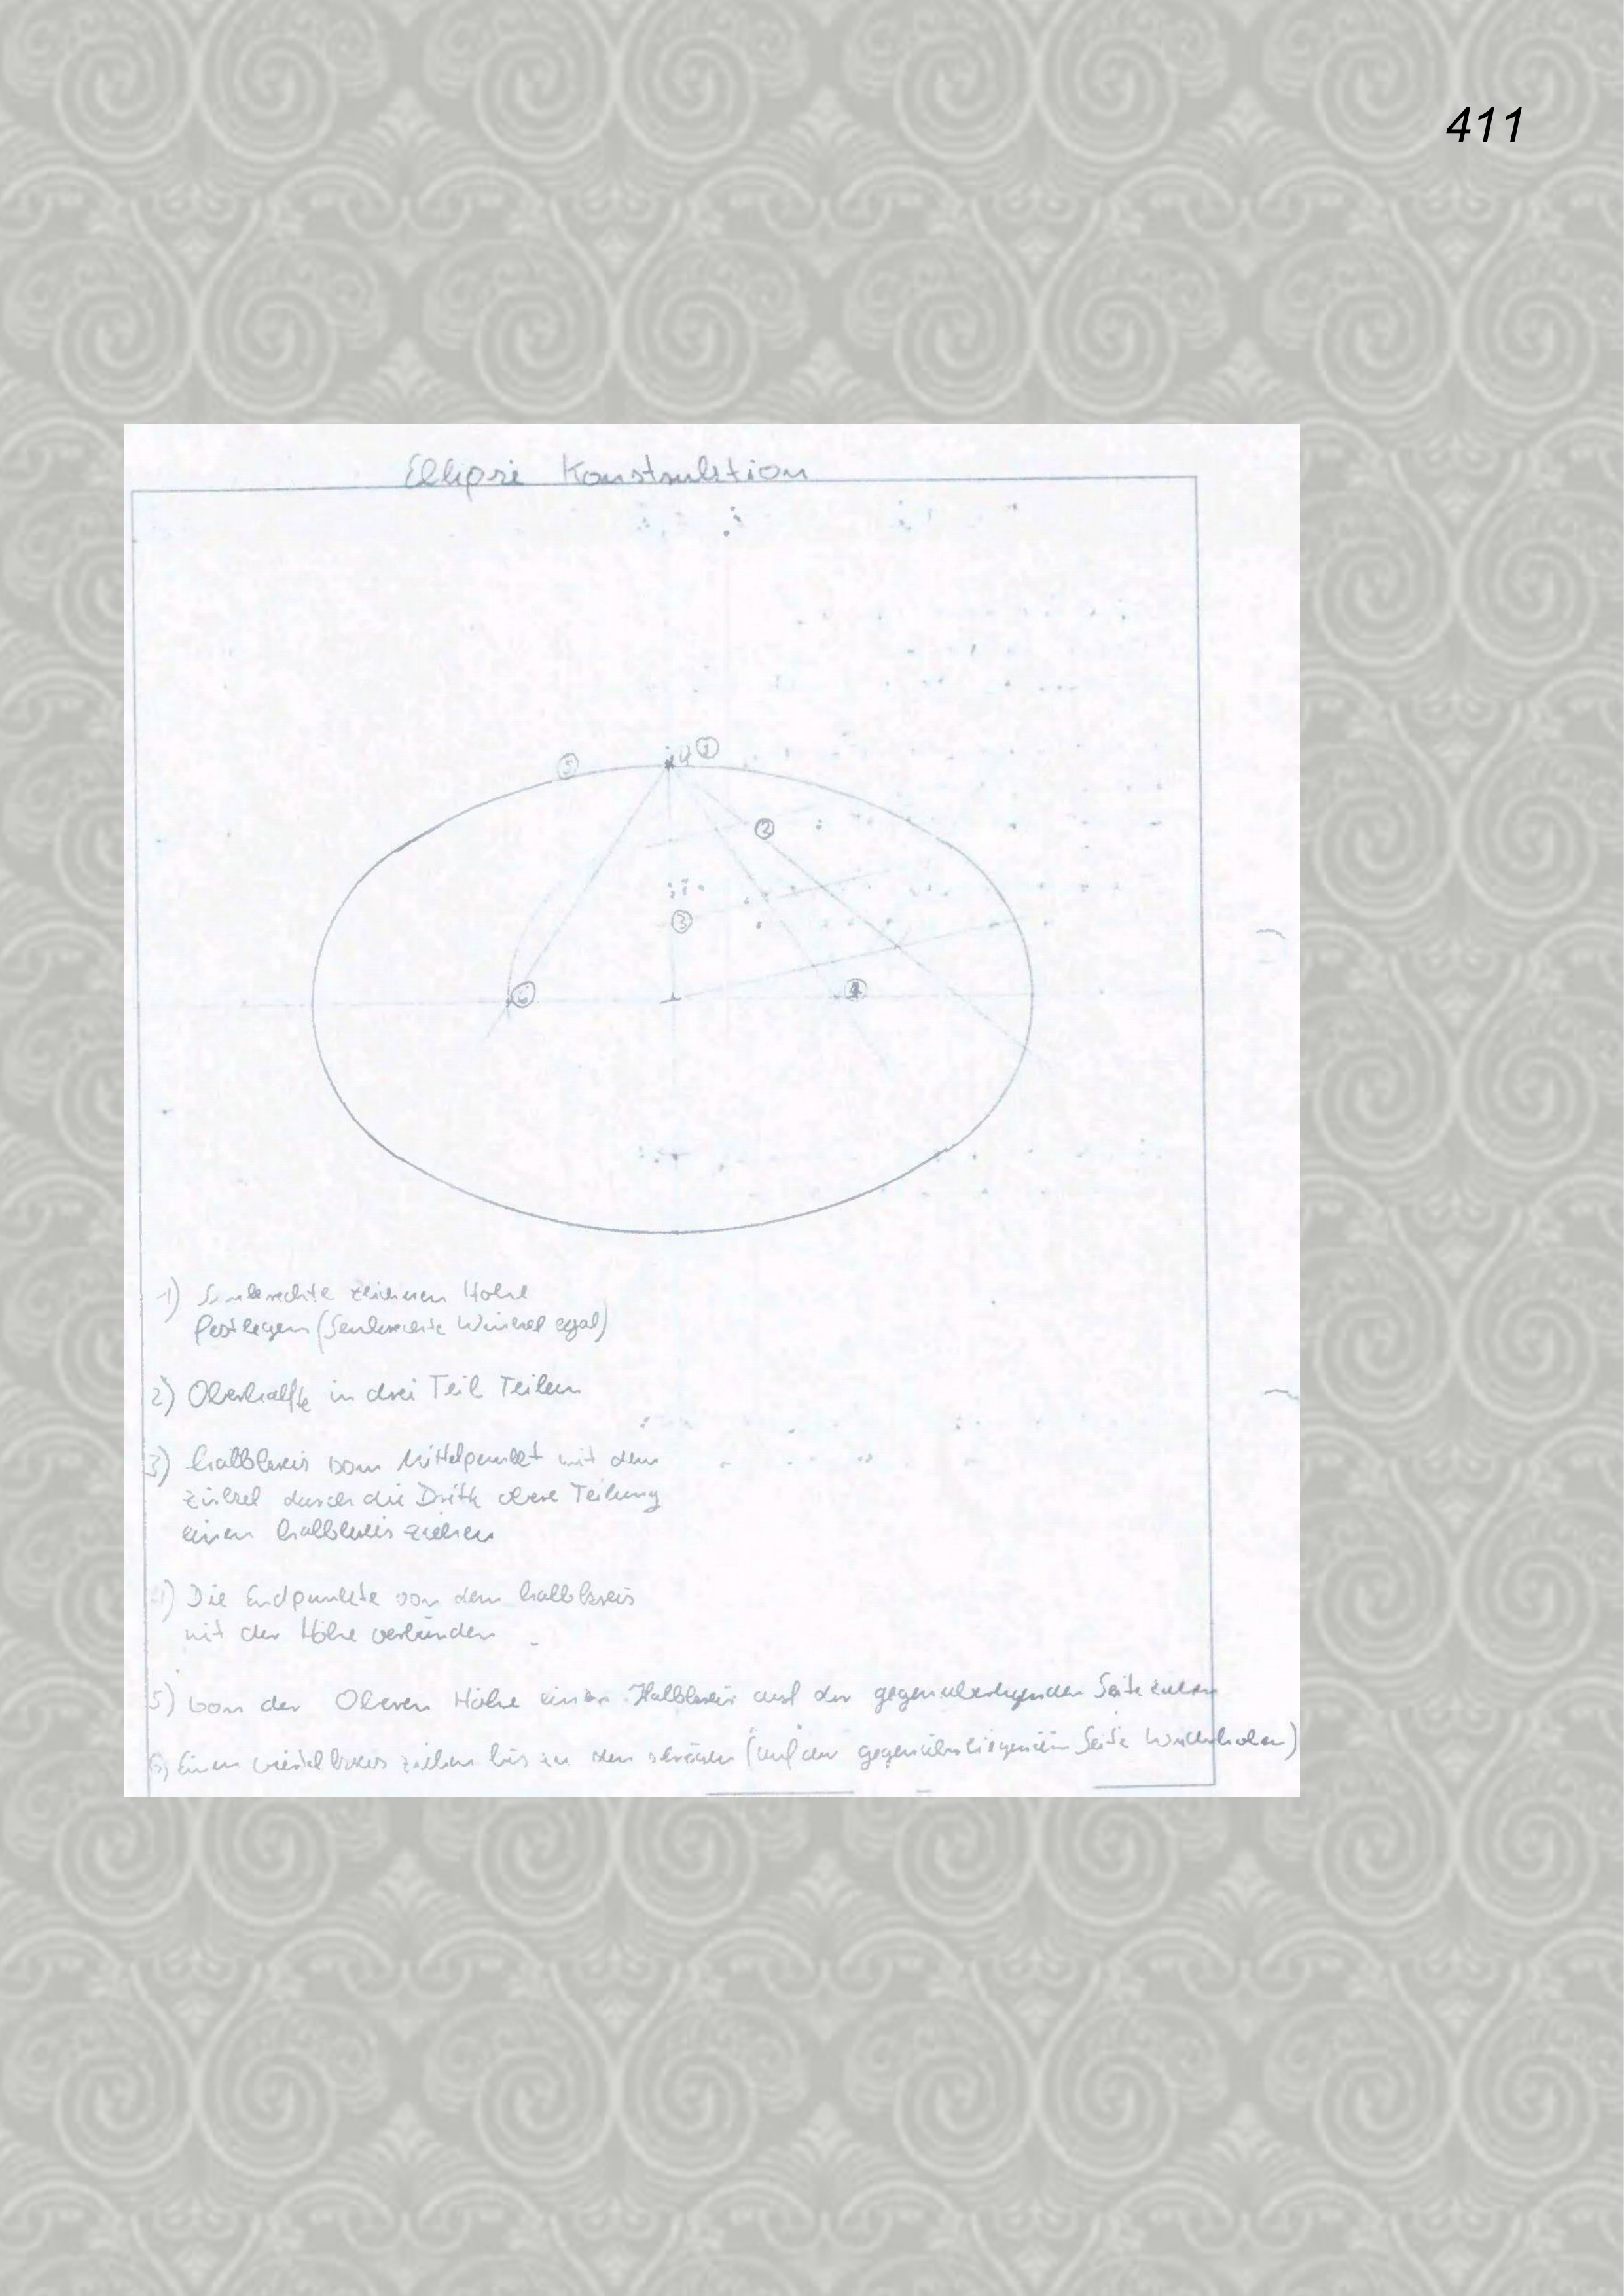 411
Ellipse Konstruktion
4 1
5
2
3
6
4
1) Senkrechte zeichnen Höhe
festlegen (Senkrechte Winkel egal)
2) Oberhälfte in drei Teil Teilen
3) halbkreis vom Mittelpunkt mit dem
Zirkel durch die Dritte obere Teilung
einen halbkreis ziehen
4) Die Endpunkte von dem halbkreis
mit der Höhe verbinden
5) von der Oberen Höhe einen Halbkreis auf der gegenüberliegenden Seite ziehen
6) Einen viertel kreis ziehen bis zu den (auf der gegenüberliegenden Seite Wiederholen)